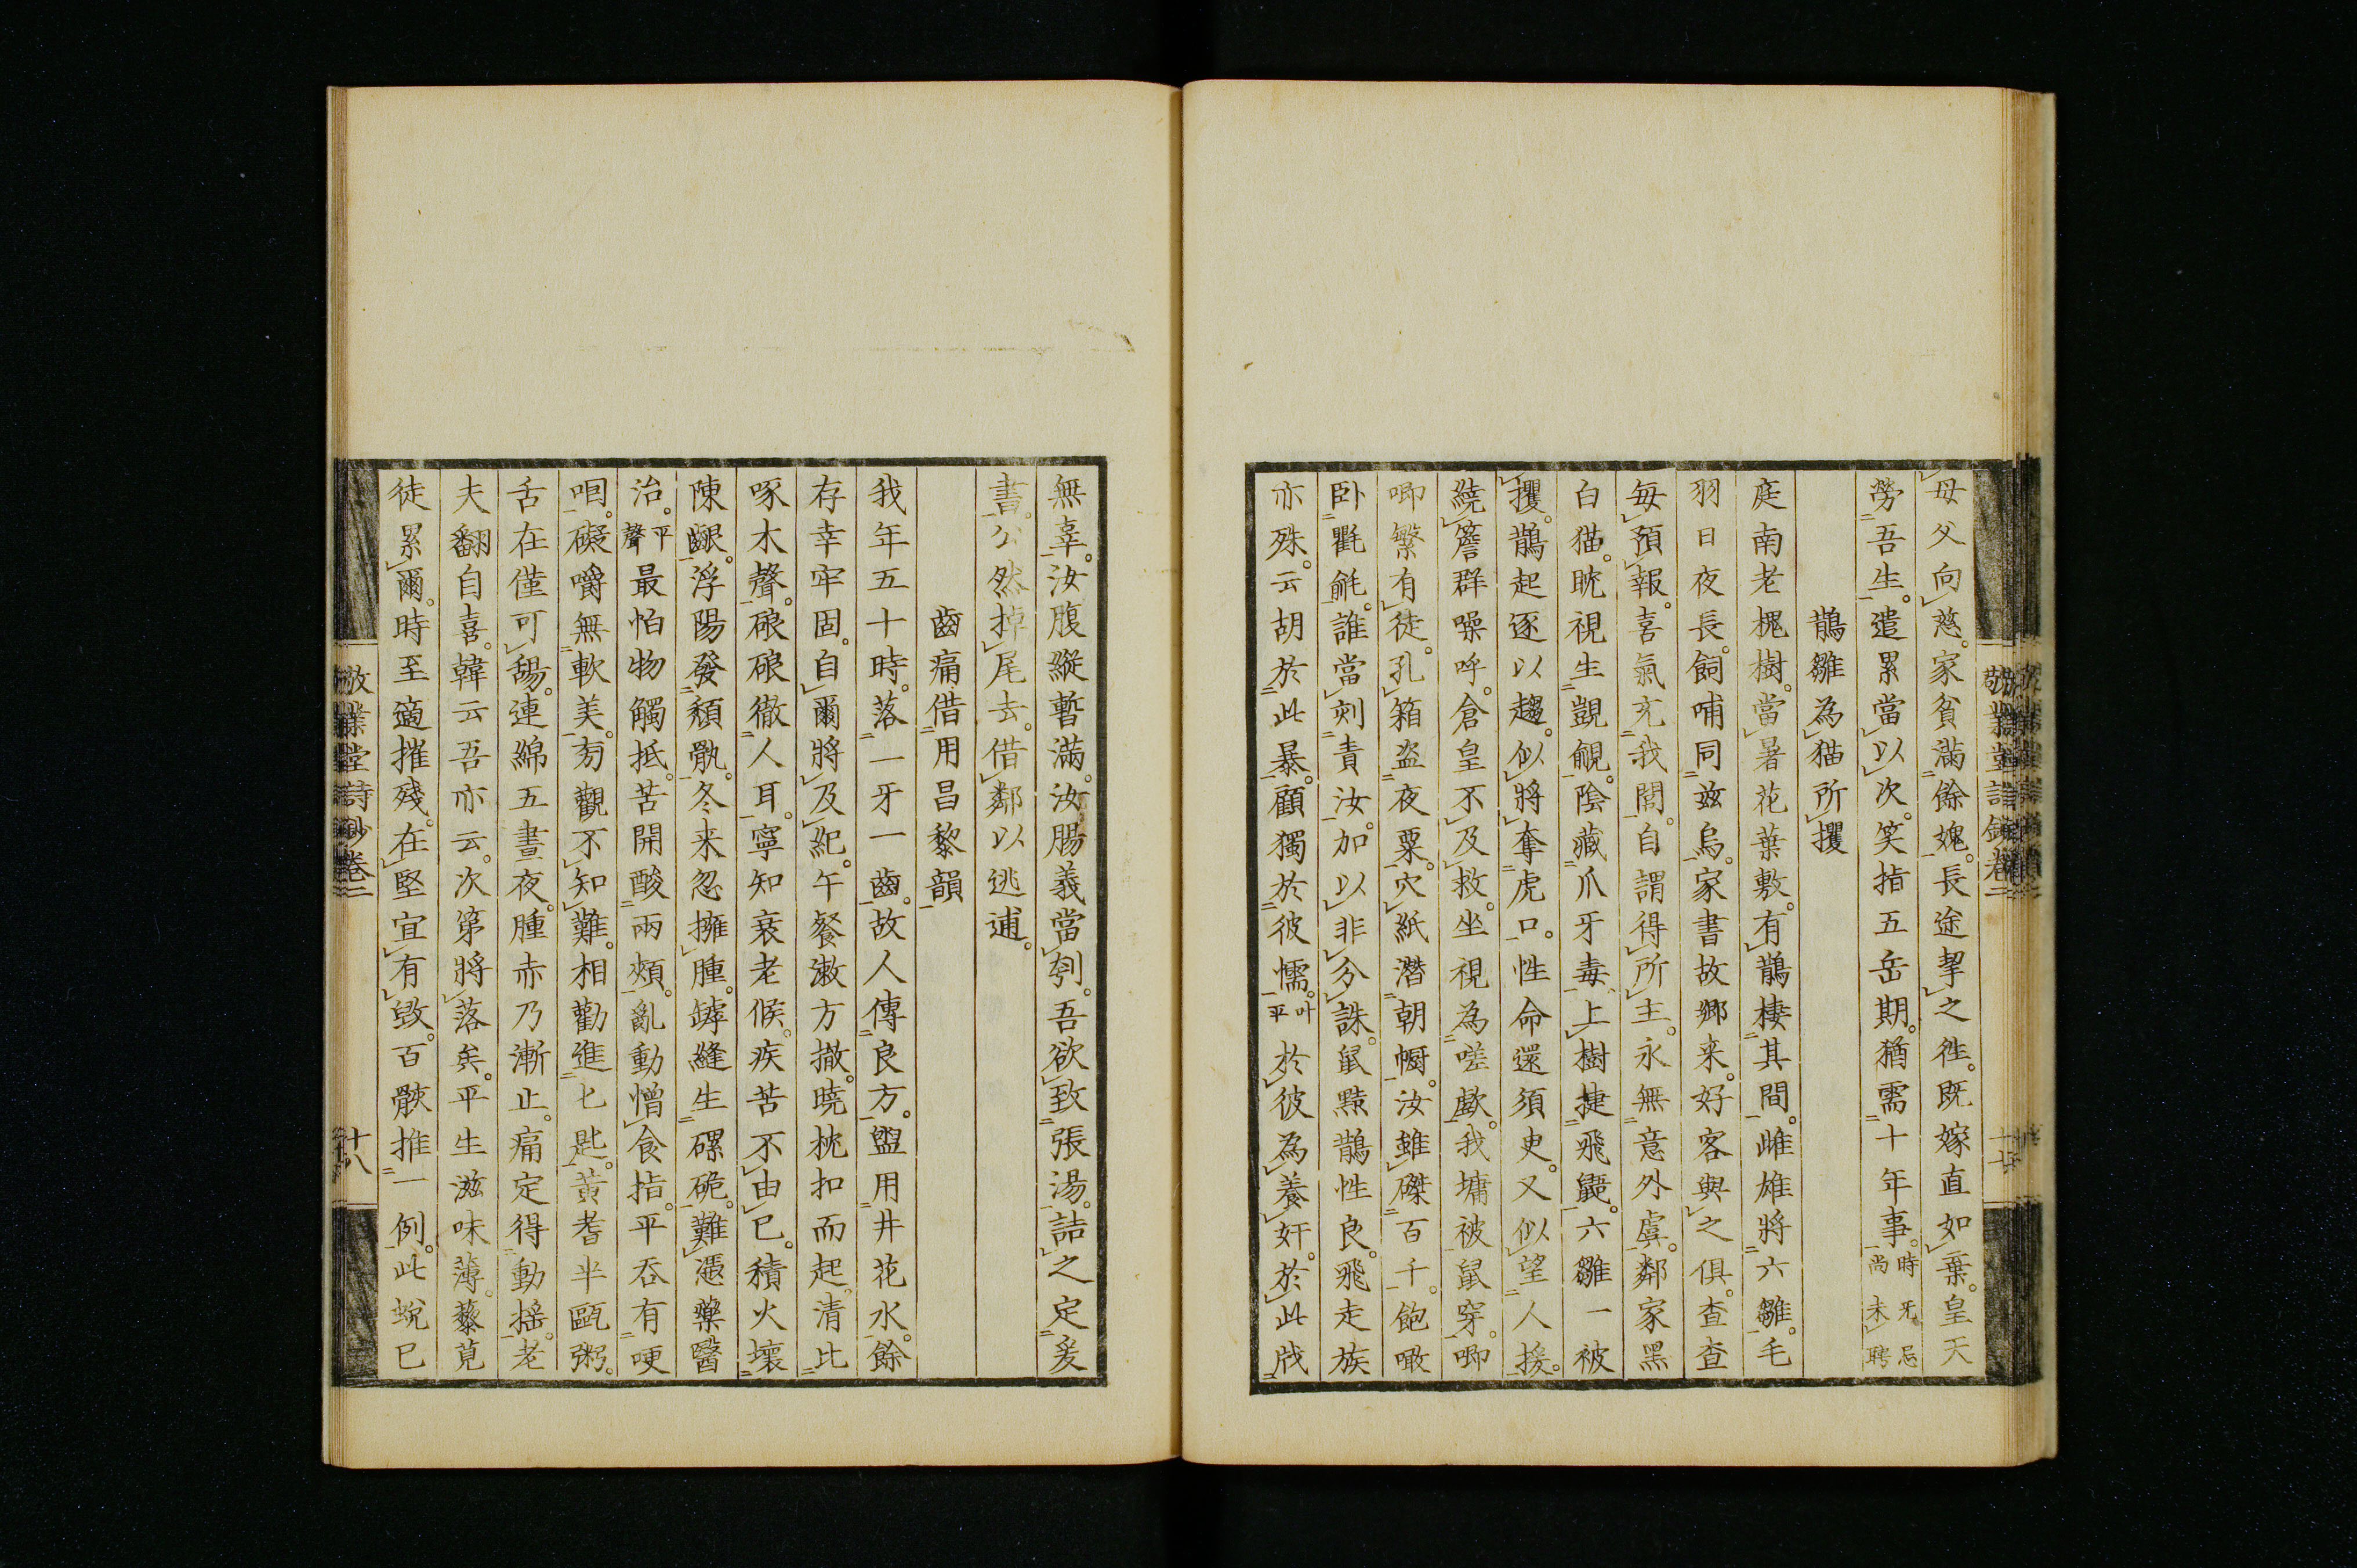 母父向慈。家貧滿餘媿。長途挈之徃。既嫁直如棄。皇天
勞吾生。遣累當以次。笑指五岳期。猶需十年事。時尚未聘
鵲雛為猫所攫
庭南老槐樹。當暑花葉敷。有鵲棲其間。雌雄將六雛。毛
羽日夜長。飼哺同兹烏。家書故鄉来。好客與之俱。查查
每預報。喜氣充我閭。自謂得所主。永無意外虞。鄰家黑
白猫。眈視生覬覦。陰藏爪牙毒。上樹捷飛鼯。六雛一被
攫。鵲起逐以趨。似將奪虎口。性命還須臾。又似望人援。
繞簷群噪呼。倉皇不及救。坐視為嗟歔。我墉被鼠穿。唧
唧繁有徒。孔箱盗夜粟。穴紙潛朝㡡。汝雖磔百千。飽噉
卧氍毹。誰當刻責汝。加以非分誅。鼠黠鵲性良。飛走族
亦殊。云胡於此暴。顧獨於彼懦。叶平於彼為養奸。於此戕
敬業堂詩鈔卷二
十七
無辜。汝腹縱暫滿。汝腸義當刳。吾欲致張湯。詰之定爰
書。公然掉尾去。借鄰以逃逋。
齒痛借用昌黎韻
我年五十時。落一牙一齒。故人傳良方。盥用井花水。餘
存幸牢固。自爾將及紀。午餐漱方撤。曉枕扣而起。清比
啄木聲。硠硠徹人耳。寧知衰老候。疾苦不由已。積火壞
陳齦。浮陽發頽骫。冬来忽擁腫。罅縫生磥硊。難憑藥醫
治。平聲最怕物觸抵。苦開酸兩頰。亂動憎食指。平吞有哽
咽。礙嚼無軟美。旁觀不知難。相勸進匕匙。黄耆半甌粥。
舌在僅可舓。連綿五晝夜。腫赤乃漸止。痛定得動摇。老
夫翻自喜。韓云吾亦云。次第將落矣。平生滋味薄。藜莧
徒累爾。時至適摧殘。在堅宜有毁。百骸推一例。此蜕已
敬業堂詩鈔卷二
十八